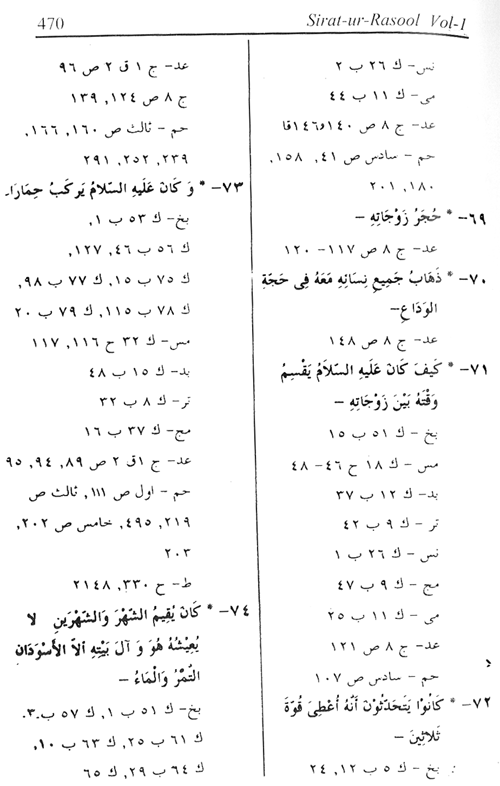 470
Sirat-ur-Rasool Vol-1
نس- ك ٢٦ ب ٢
مى- ك ١١ ب ٤٤
عد- ج ٨ ص ١٤٠ و١٤٦قا
حم - سادس ص ٤١, ١٥٨,
١٨٠, ٢٠١
٦٩- * حُجَرُ زَوْجَاتِهِ -
عد- ج ٨ ص ١١٧- ١٢٠
٧٠- * ذَهَابُ جَمِيعِ نِسَائِهِ مَعَهُ فِى حَجَّةِ
الوَدَاعِ-
عد- ج ٨ ص ١٤٨
٧١- * كَيفَ كَانَ عَلَيهِ السَّلاَمُ يَقْسِمُ
وَقْتَهُ بَيْنَ زَوْجَاتِهِ -
بخ - ك ٥١ ب ١٥
مس - ك ١٨ ح ٤٦- ٤٨
بد- ك ١٢ ب ٣٧
تر - ك ٩ ب ٤٢
نس - ك ٢٦ ب ١
مج - ك ٩ ب ٤٧
مى - ك ١١ ب ٢٥
عد- ج ٨ ص ١٢١
حم - سادس ص ١٠٧
٧٢- * كَانُوا يَتَحَدَّثُوْنَ أَنَّهُ أُعْطِىَ قُوَّةَ
ثَلاثِينَ -
بخ - ك ٥ ب ١٢, ٢٤
عد- ج ١ ق ٢ ص ٩٦
ج ٨ ص ١٢٤, ١٣٩
حم - ثالث ص ١٦٠, ١٦٦,
٢٣٩, ٢٥٢, ٢٩١
٧٣- * وَ كَانَ عَلَيهِ السَّلامُ يَركَبُ حِمَارَا-
بخ- ك ٥٣ ب ١,
ك ٥٦ ب ٤٦, ١٢٧,
ك ٧٥ ب ١٥, ك ٧٧ ب ٩٨,
ك ٧٨ ب ١١٥, ك ٧٩ ب ٢٠
مس- ك ٣٢ ح ١١٦, ١١٧
بد- ك ١٥ ب ٤٨
تر- ك ٨ ب ٣٢
مج- ك ٣٧ ب ١٦
عد- ج ١ق ٢ ص ٨٩, ٩٤, ٩٥
حم - اول ص ١١١, ثالث ص
٢١٩, ٤٩٥, خامس ص ٢٠٢,
٢٠٣
ط- ح ٣٣٠, ٢١٤٨
٧٤- * كَانَ يُقِيمُ الشَّهْرَ وَالشَّهْرَينِ لا
يُعِيْشُهُ هُوَ وَ آلَ بَيْتِهِ اَلاّ الأَسْوَدَانِ
التَّمْرُ وَالْمَاءُ -
بخ- ك ٥١ ب ١, ك ٥٧ ب.٣.
ك ٦١ ب ٢٥, ك ٦٣ ب ١٠,
ك ٦٤ ب ٢٩, ك ٦٥